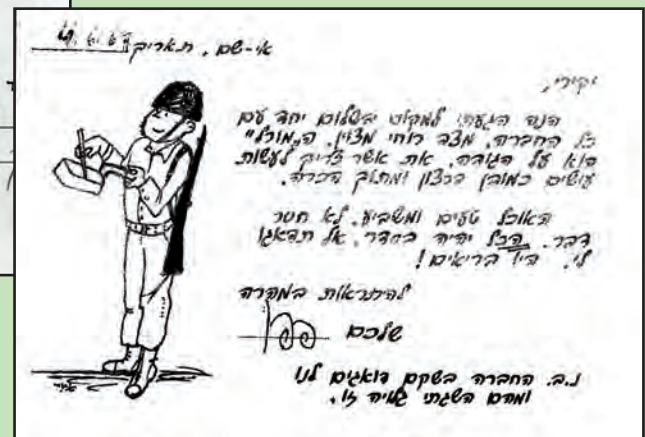 אי-שם, תאריך
יקירי,
הנה הגעתי למקום בשלום יחד עם
כל החברה. מצב רוחי מצוין. ה"מורל"
הוא על הגובה. את אשר צריך לעשות
עושים כמובן ברצון ומתוך הכרה.
האוכל טעים ומשביע. לא חסר
דבר. הכל יהיה בסדר. אל תדאגו
לי. היו בריאים!
להתראות במקרה
שלכם
נ.ב. החברה בשקם דואגים לנו
ומהם השגתי גלויה זו.